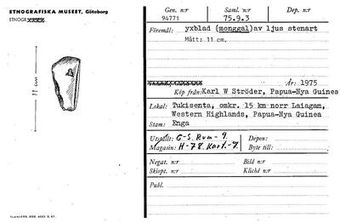 ETNOGRAFISKA MUSEET, Göteborg
ETNOGR
11 cm
Gen. n:r
94771
Saml. n:r
75.9.3
Dep. n:r
Föremål: yxblad (monggal)av ljus stenart
Mått: 11 cm.
År: 1975
Köp från: Karl W Ströder, Papua-Nya Guinea
Lokal: Tukisenta, omkr. 15 km norr Laiagam,
Western Highlands, Papua-Nya Guinea
Stam: Enga
Utställt: G-S. Rum-9.
Magasin: H-78. Kart.-7.
Depon:
Byte till:
Negat. n:r
Bild n:r
Skiopt. n:r
Kliché n:r
Publ.